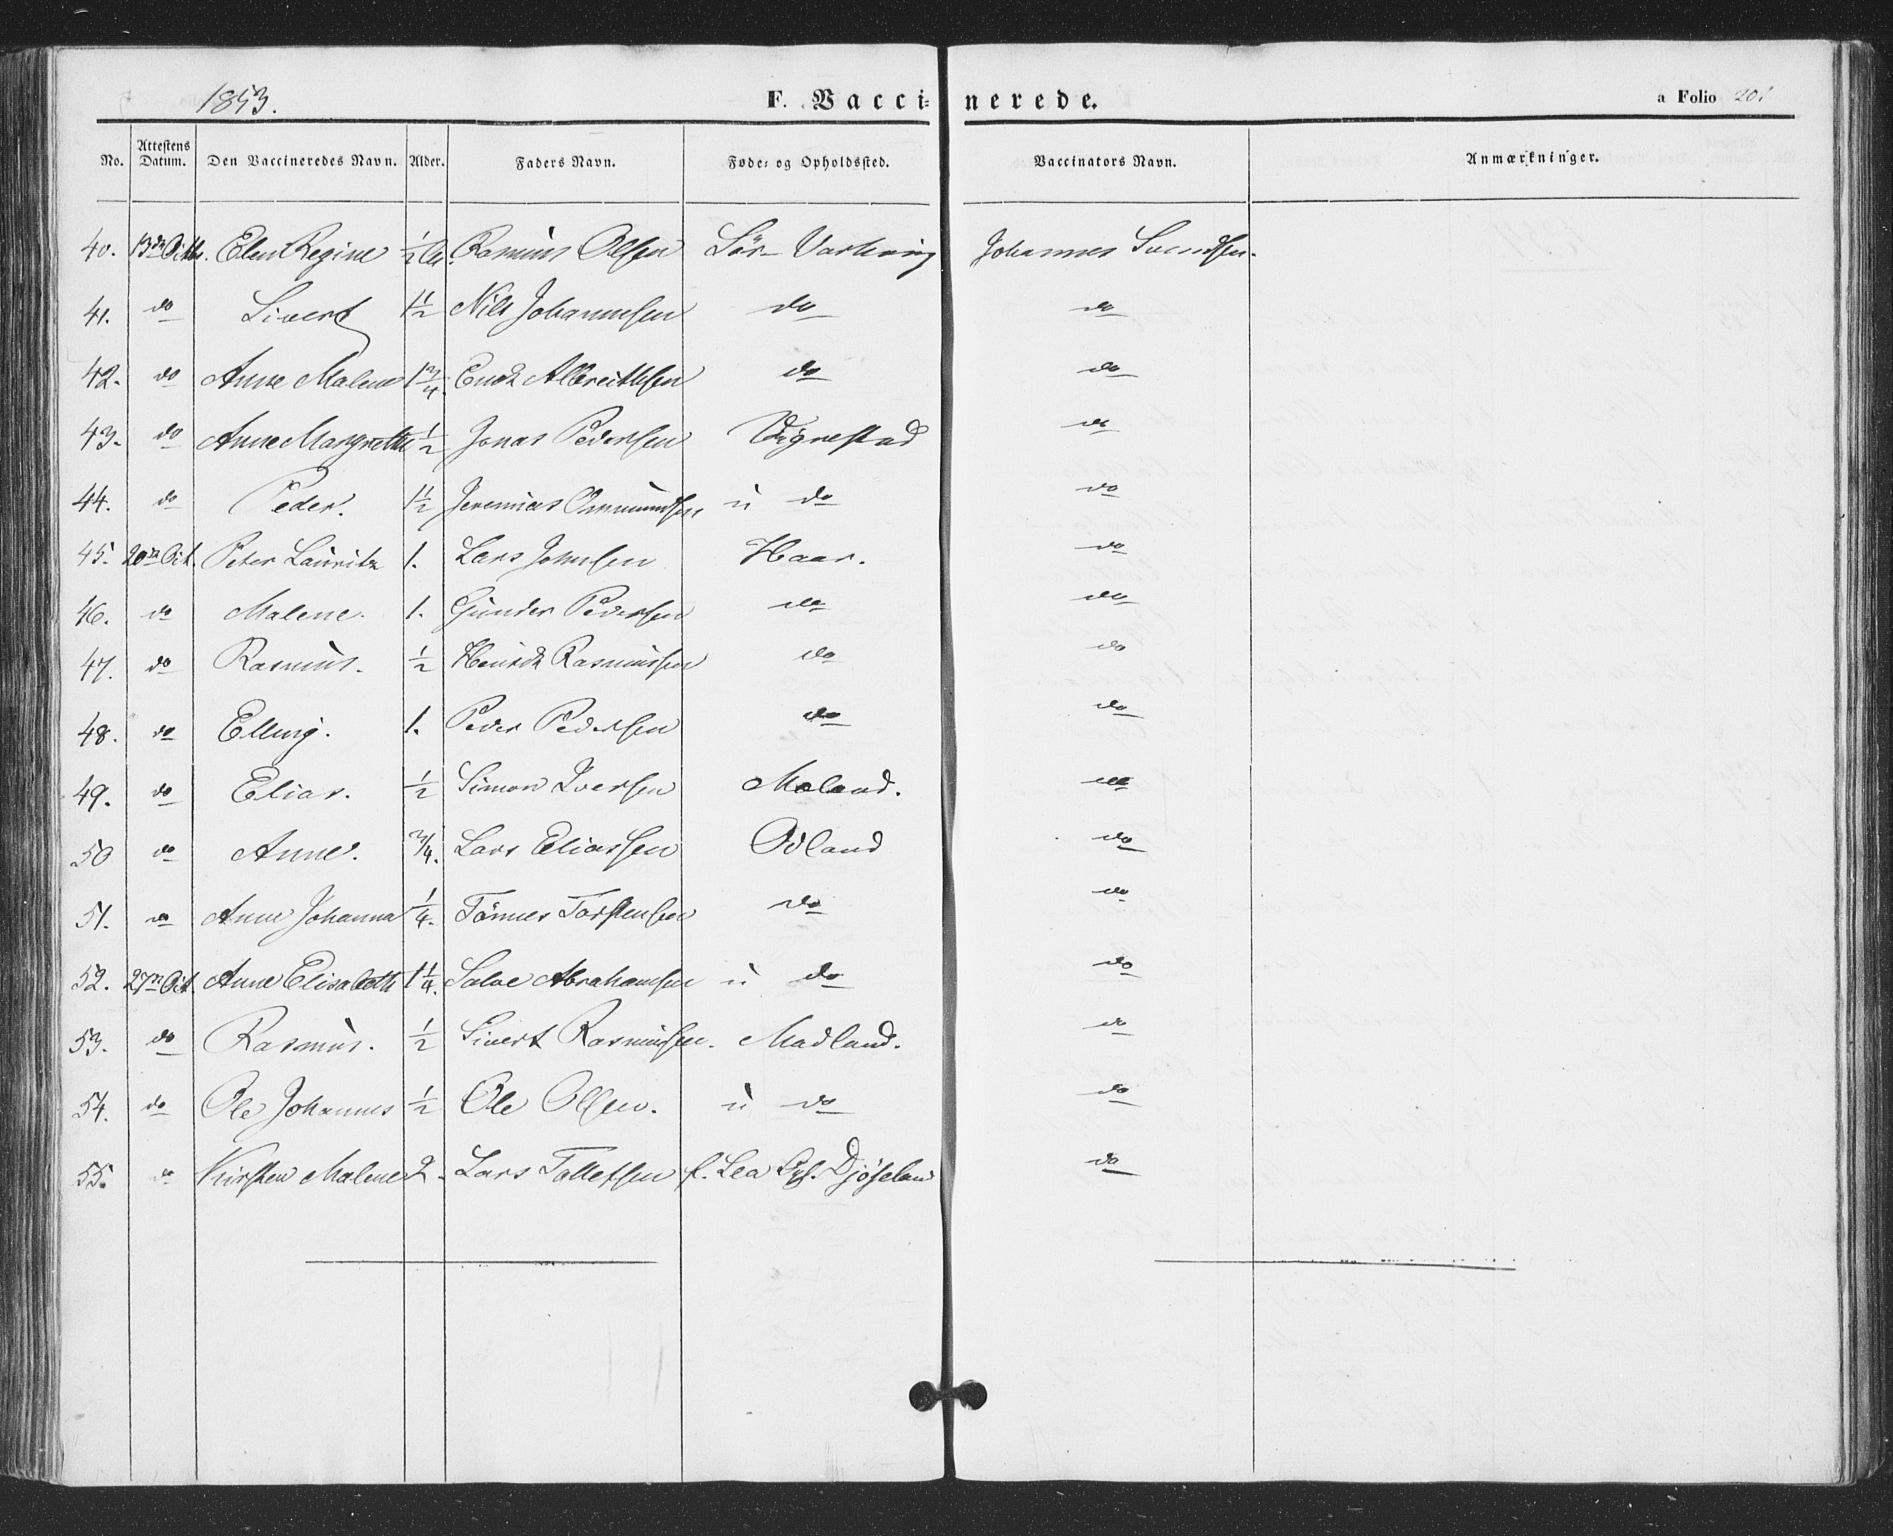 1853. F. Vaccinerede. a Folio 201
No. Attestens Datum. Den Vaccineredes Navn. Alder. Faders Navn. Føde- og Opholdssted. Vaccinators Navn. Anmærkninger.
40. 13de Octbr. Elen Regine ½ Rasmus Olsen Sör- Varhoug Johannes Svendsen.
41. do Sivert 1½ Nils Johannesen do do
42. do Anne Malene 1¾ Enok Albreithsen do do
43. do Anne Margrethe ½ Jonas Pedersen Vigrestad do
44. do Peder. 1½ Jeremias Ommundsen u do do
45. 20de Oct. Peter Lauritz 1. Lars Johnsen Haar. do
46. do Malene. 1. Gunder Pedersen do do
47. do Rasmus. ½ Henrik Rasmussen do do
48. do Elling. 1. Peder Pedersen do do
49. do Elias. ½ Simon Iversen Moland. do
50 do Anne. ¾. Lars Eliassen Odland do
51. do Anne Johanna ¼. Tönnes Torstensen do do
52. 27de Oct. Anne Elisabeth 1¼. Salve Abrahamsen u do do
53. do Rasmus. ½ Sivert Rasmussen. Madland. do
54. do Ole Johannes ½ Ole Olsen. u do do
55. do Kirsten Malene 2. Lars Tollefsen f. Lea Djöseland do